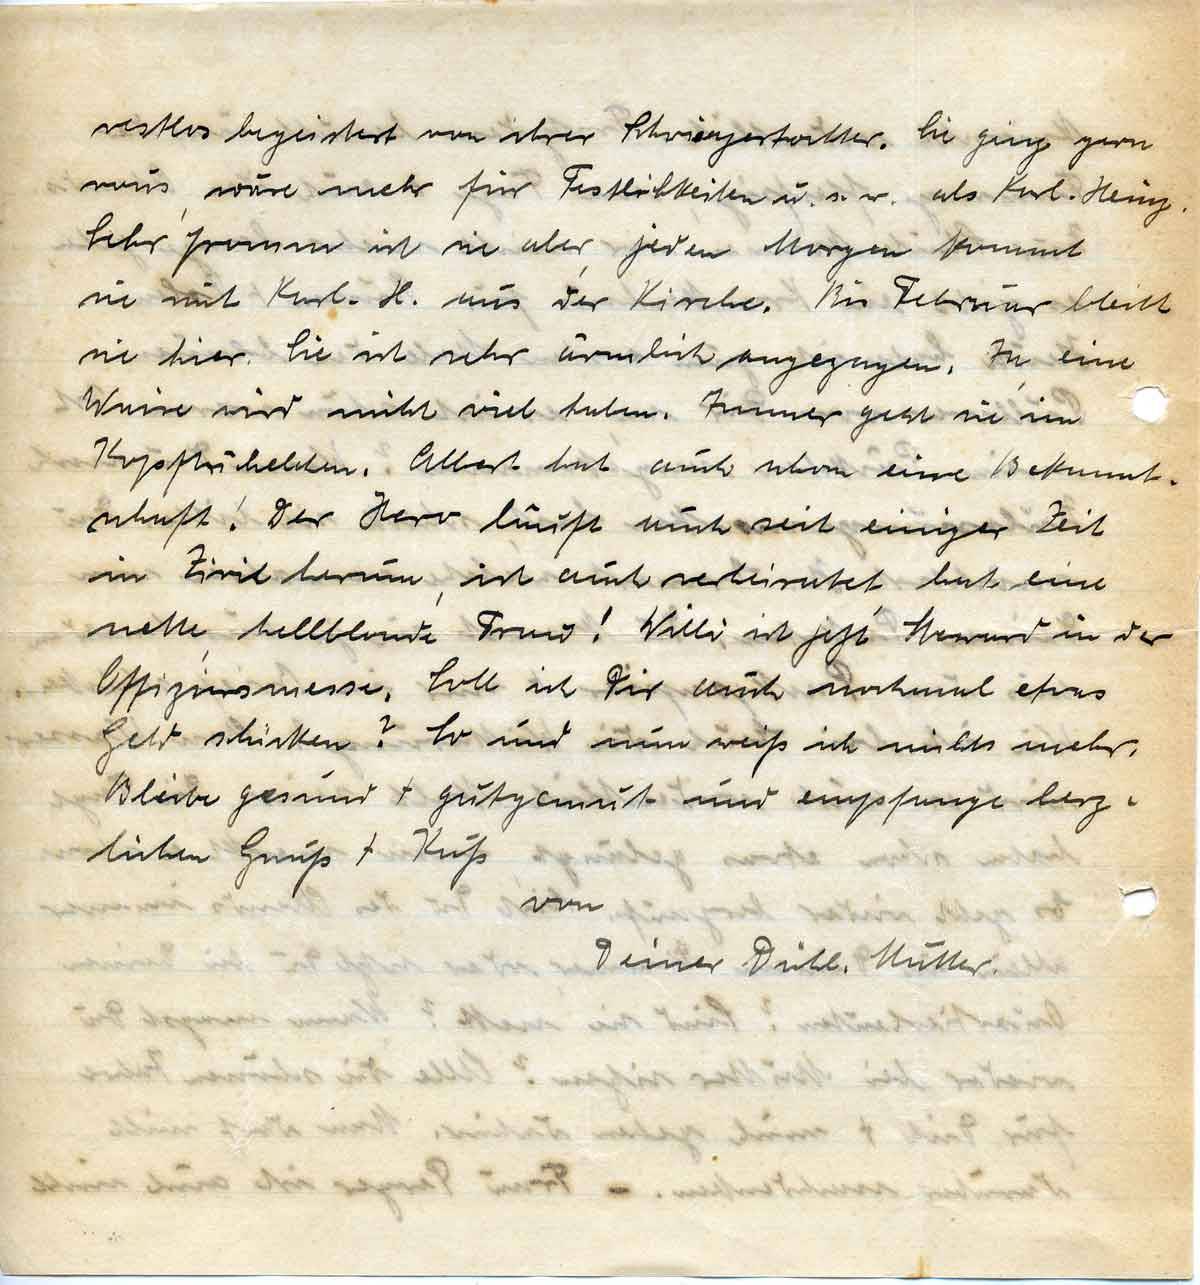 restlos begeistert von ihrer Schwiegertochter. Sie ging gern
raus, wäre mehr für Festlichkeiten u. s. w. als Karl-Heinz.
Sehr fromm ist sie aber, jeden Morgen kommt
sie mit Karl-H. aus der Kirche. Bis Februar bleibt
sie hier. Sie ist sehr ärmlich angezogen. Ja, eine
Waise wird nicht viel haben. Immer geht sie im
Albert hat auch schon eine Bekannt-
schaft! Der Hero läuft auch seit einiger Zeit
in Zivil herum, ist auch verheiratet hat eine
nette, hellblonde Frau! Willi ist jetzt Steward in der
Offiziersmesse. Soll ich Dir auch nochmal etwas
Geld schicken? So und nun weiß ich nichts mehr.
Bleibe gesund + gutgemut und empfange herz-
lichen Gruß + Kuß
von
Deiner Mutter.